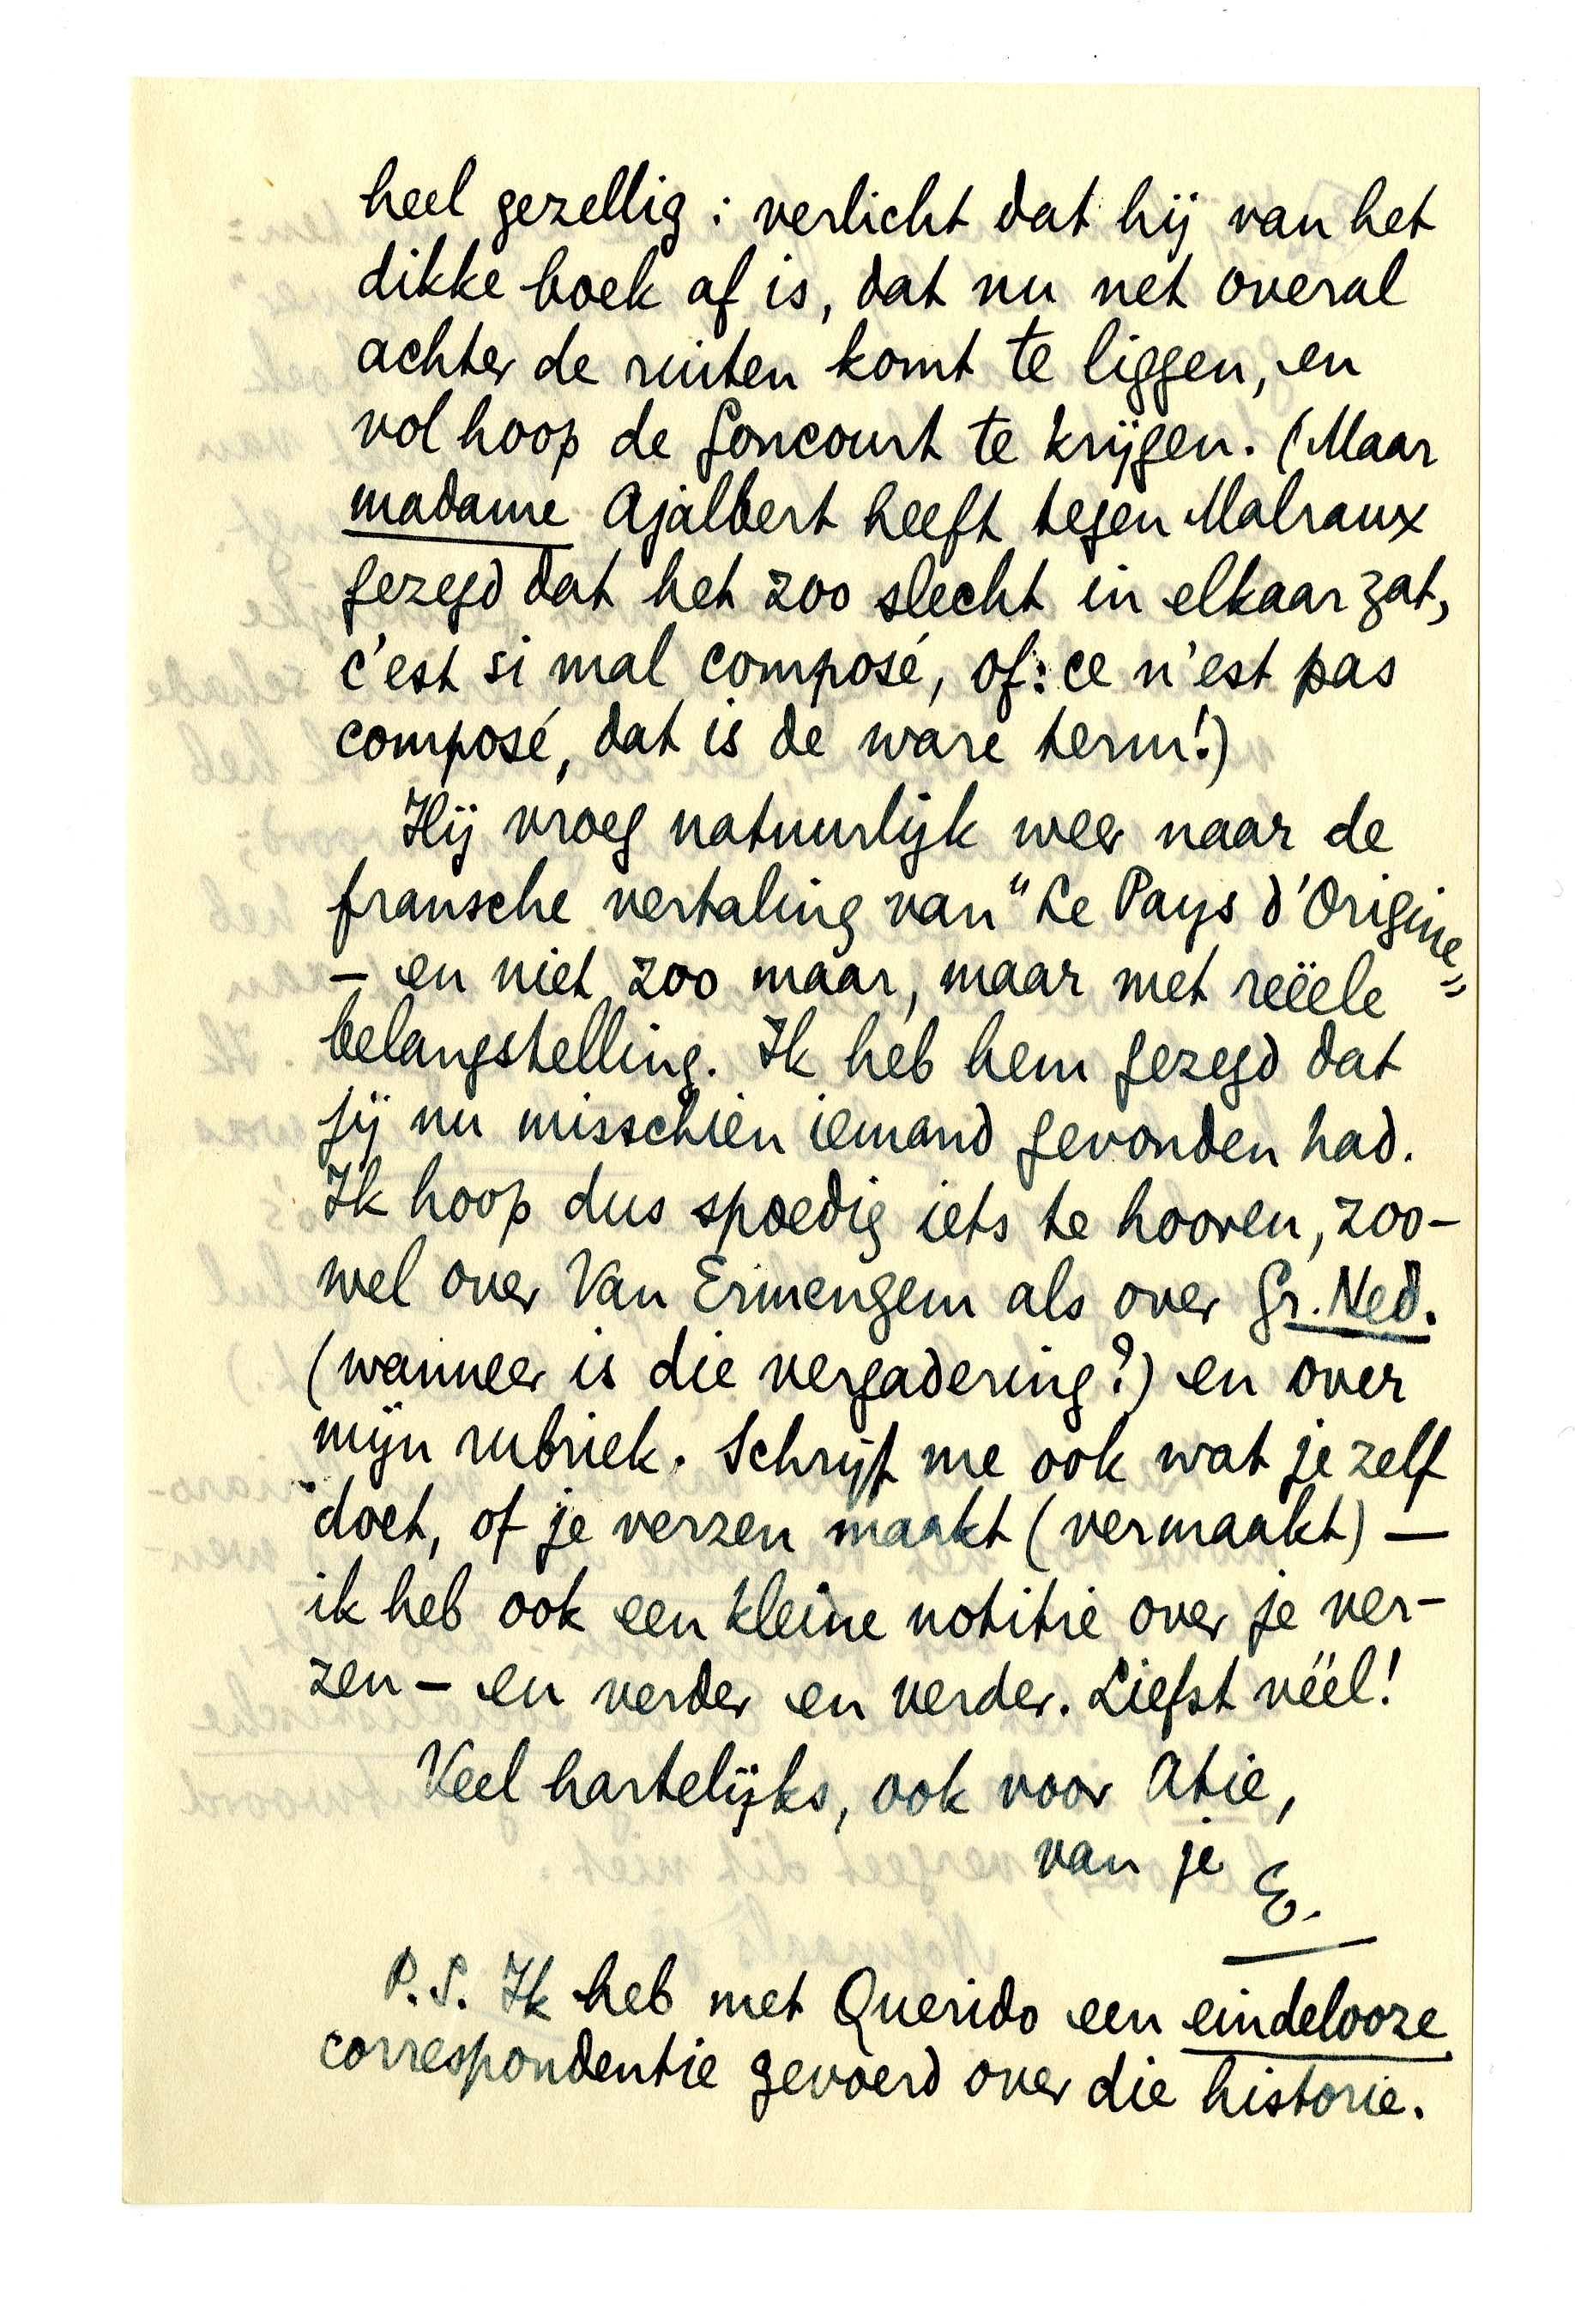 heel gezellig : verlicht dat hij van het
dikke boek af is, dat nu net overal
achter de ruiten komt te liggen, en
vol hoop de Goncourt te krijgen. (Maar
madame Ajalbert heeft tegen Malraux
gezegd dat het zoo slecht in elkaar zat,
c'est si mal composé, of: ce n'est pas
composé, dat is de ware term!)
Hij vroeg natuurlijk weer naar de
fransche vertaling van "Le Pays d'Origine"
— en niet zoo maar, maar met reëele
belangstelling. Ik heb hem gezegd dat
jij nu misschien iemand gevonden had.
Ik hoop dus spoedig iets te hooren, zoo-
wel over Van Ermengem als over Gr. Ned.
(wanneer is die vergadering?) en over
mijn rubriek. Schrijf me ook wat je zelf
doet, of je verzen maakt (vermaakt) —
ik heb ook een kleine notitie over je ver-
zen — en verder en verder. Liefst véél!
Veel hartelijks, ook voor Atie,
van je E.
P.S. Ik heb met Querido een eindelooze
correspondentie gevoerd over die historie.